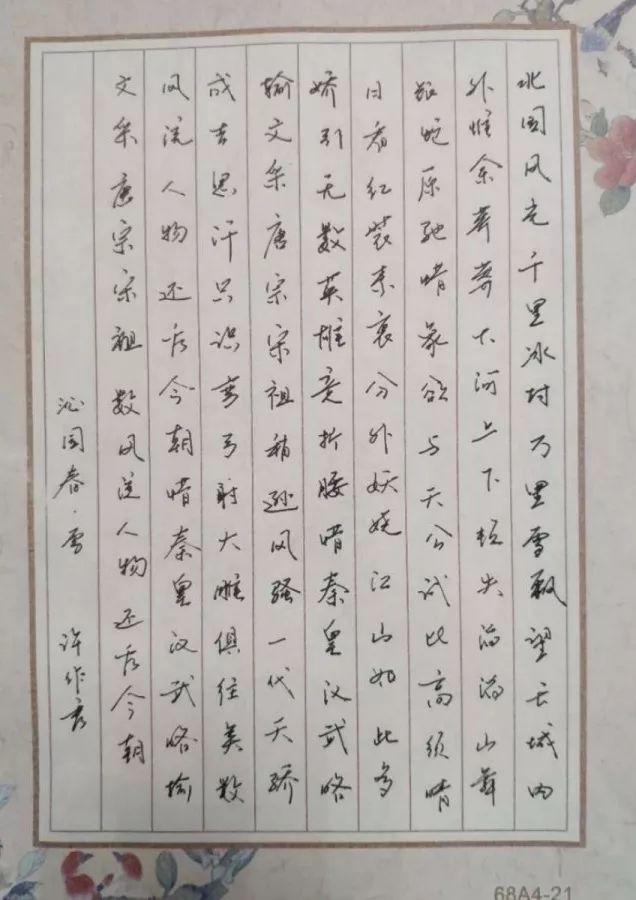 北国风光千里冰封万里雪飘望长城内
外惟余莽莽大河上下顿失滔滔山舞
银蛇原驰蜡象欲与天公试比高须晴
日看红装素裹分外妖娆江山如此多
娇引无数英雄竞折腰惜秦皇汉武略
输文采唐宗宋祖稍逊风骚一代天骄
成吉思汗只识弯弓射大雕俱往矣数
风流人物还看今朝惜秦皇汉武略输
文采唐宗宋祖数风流人物还看今朝
沁园春·雪 许作
68A4-21